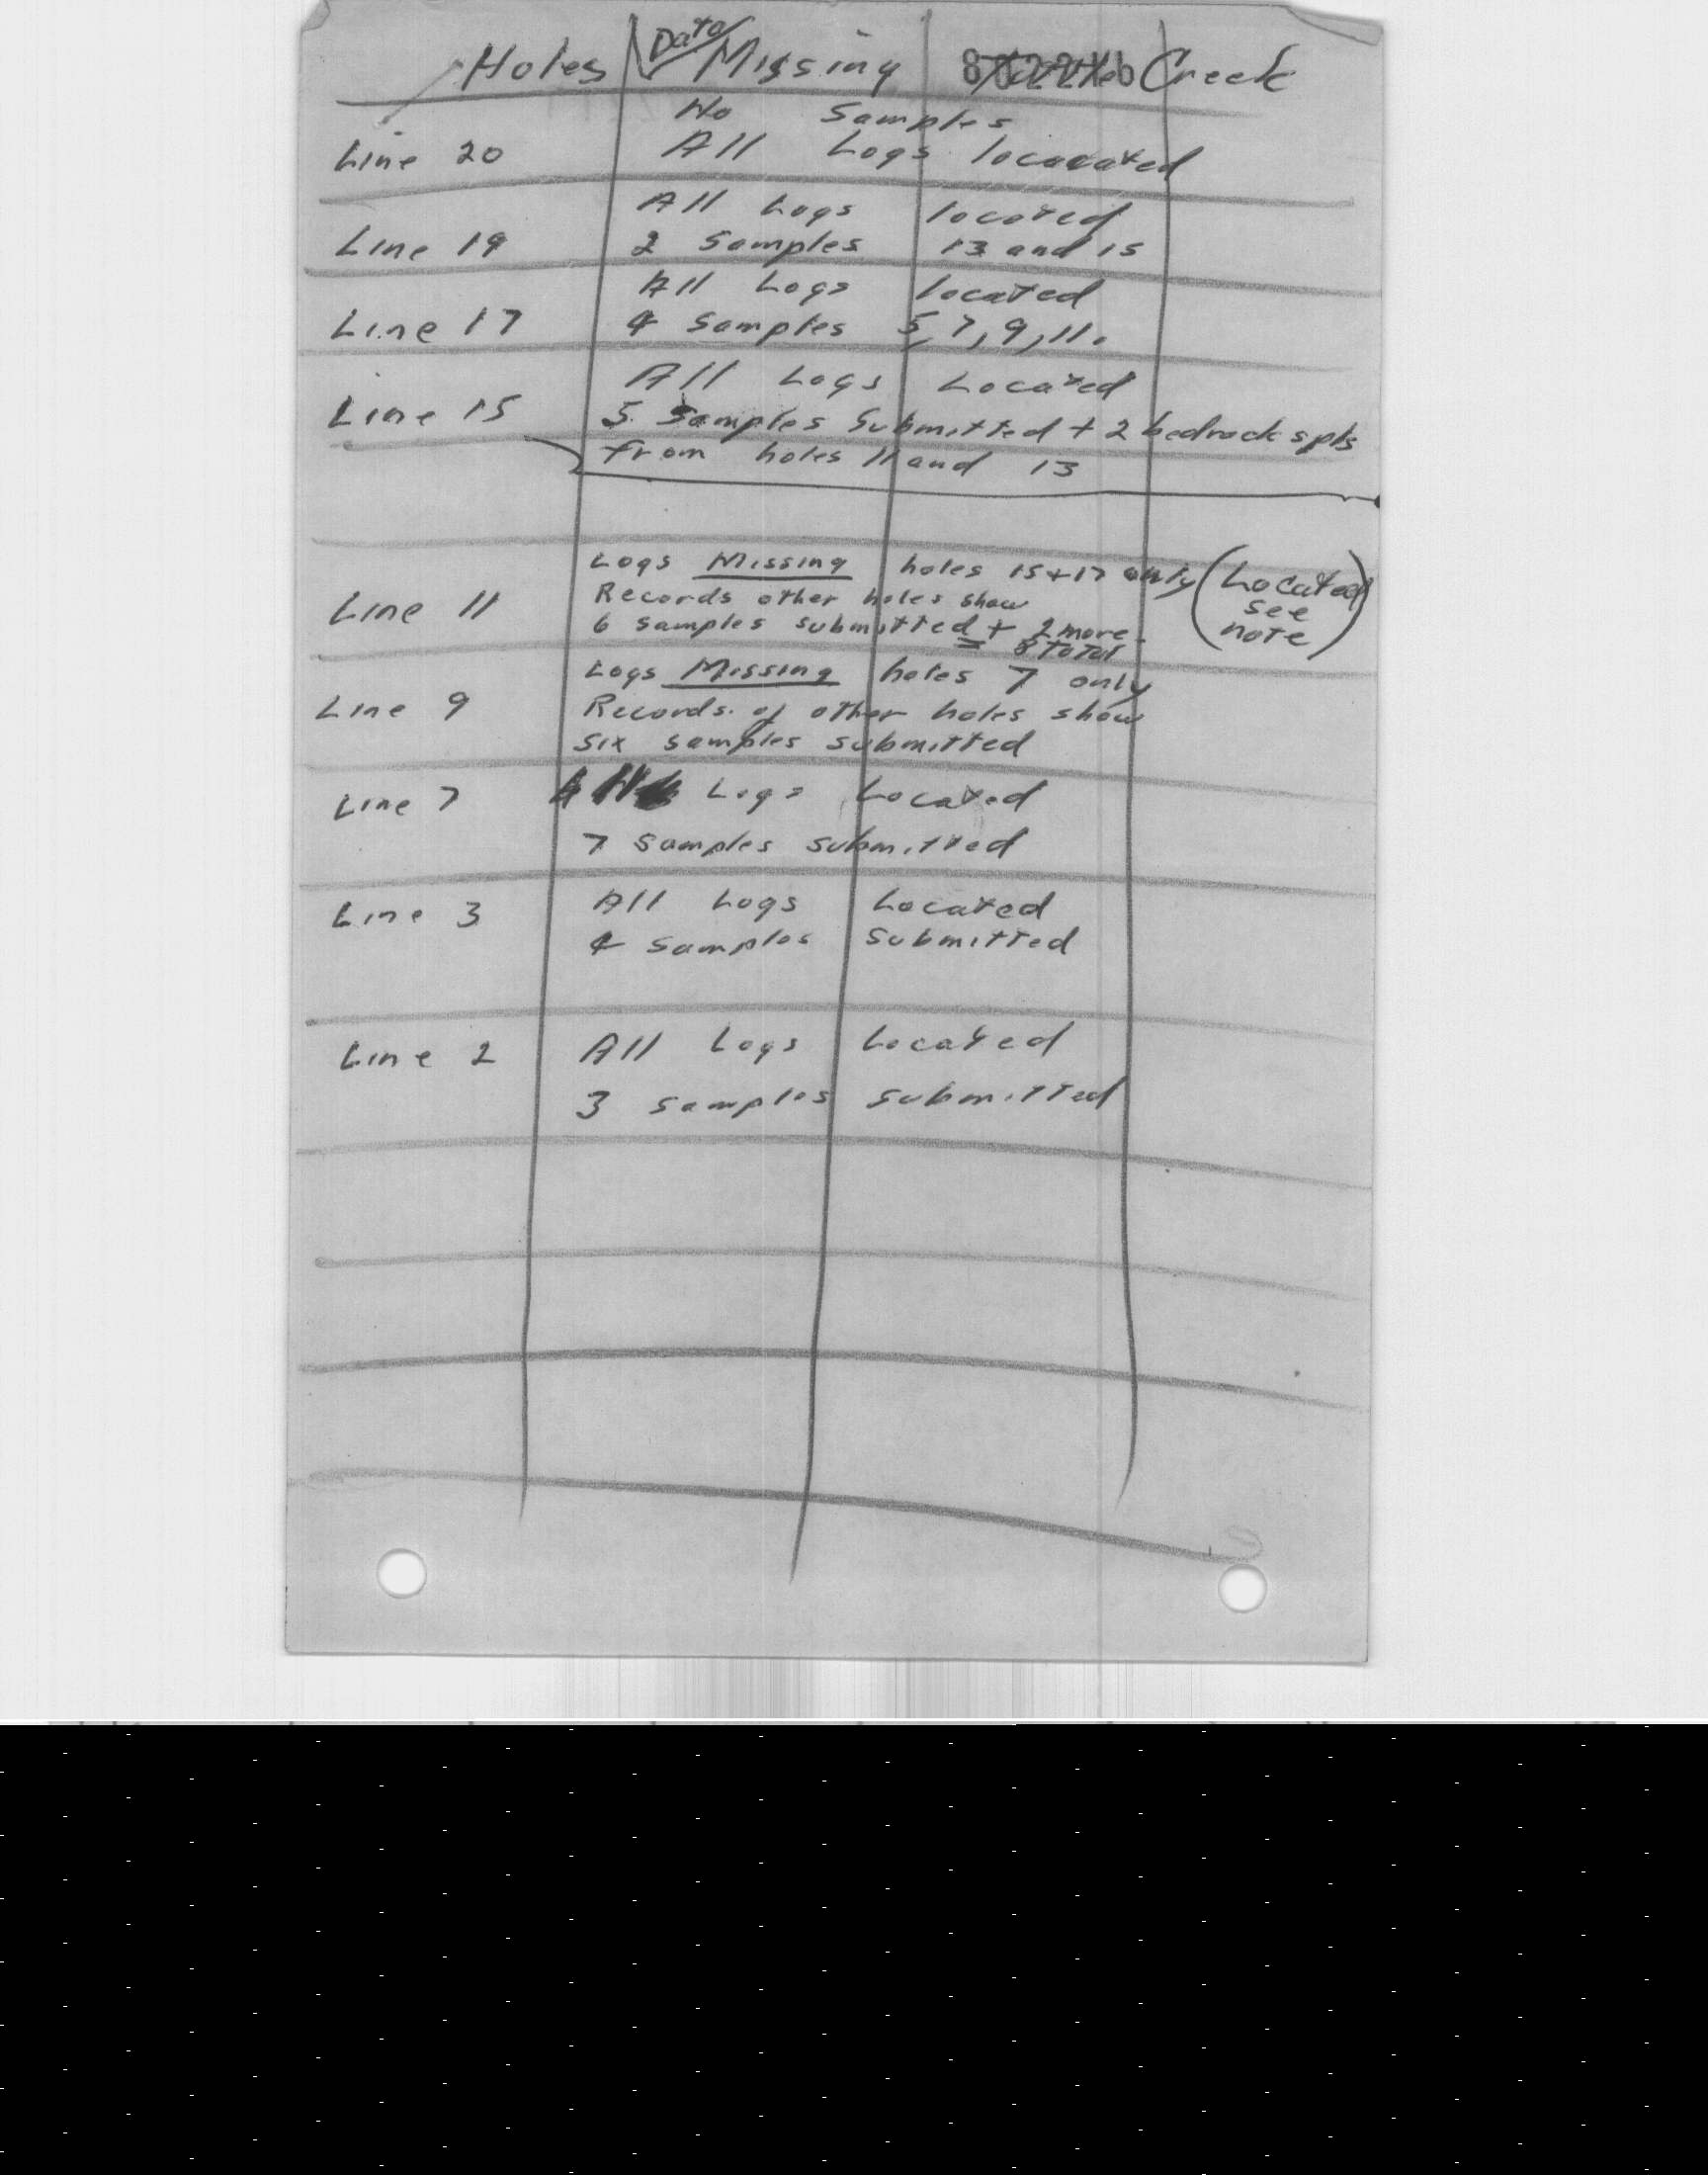 Holes Data Missing Creek
No Samples
Line 20 All Logs locacated
All Logs located
Line 19 2 Samples 13 and 15
All Logs located
Line 17 4 Samples 5, 7, 9, 11.
All Logs Located
Line 15 5 Samples Submitted + 2 bedrock spls
from holes 11 and 13
Logs Missing holes 15+17 only (Located
Line 11 Records other holes show see
6 samples submitted + 2 more. note)
= 8 total
Logs Missing holes 7 only
Line 9 Records of other holes show
six samples submitted
Line 7 All Logs Located
7 samples submitted
Line 3 All Logs Located
4 samples submitted
Line 2 All Logs Located
3 samples submitted